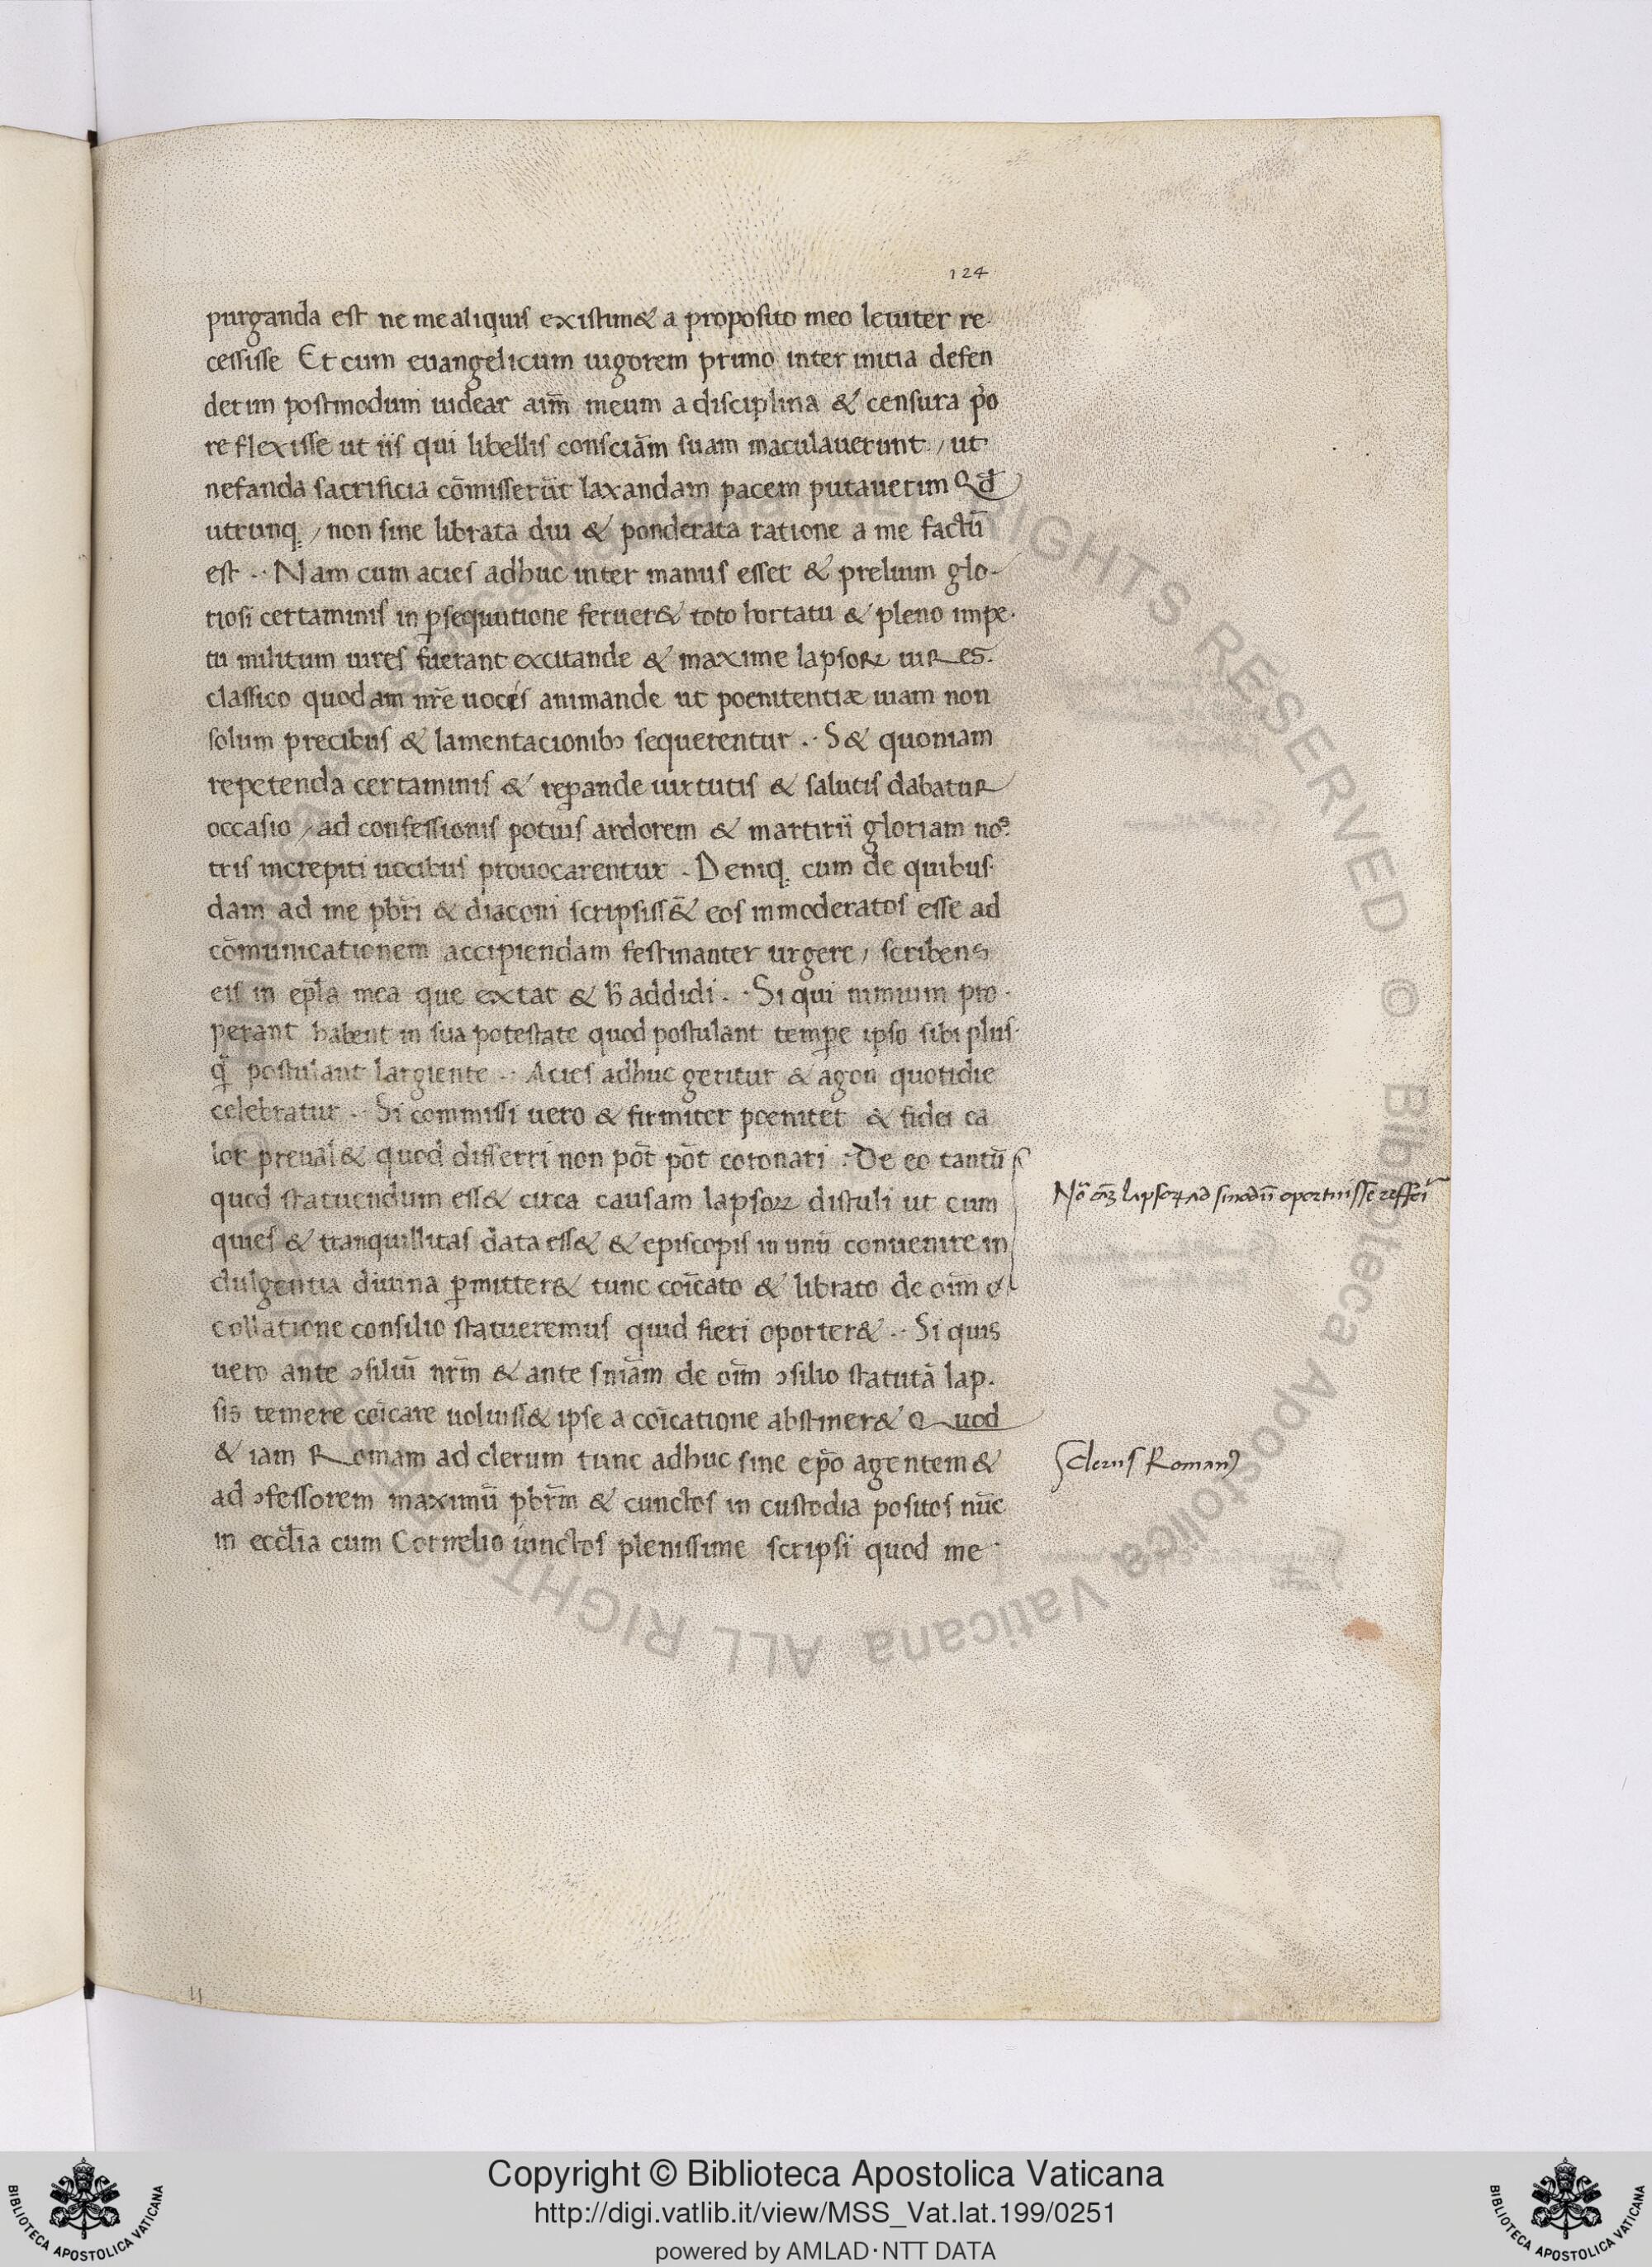 124
purganda est ne me aliquis existim& a proposito meo leuiter re-
cessisse Et cum euangelicum uigorem primo inter initia defen
derim postmodum uidear aim̄ meum a disciplina & censura p̄o
re flexisse ut iis qui libellis consciām suam maculauerunt / ut
nefanda sacrificia cōmisserūt laxandam pacem putauerim Qd̄
utrunq; / non sine librata diu & ponderata ratione a me factū
est .· Nam cum acies adhuc inter manus esset & prelium glo-
riosi certaminis in ꝑsequutione feruer& toto hortatu & pleno impe-
tu militum uires fuerant excitande & maxime lapsoꝝ uiRes.
classico quodam nr̄e uoces animande ut poenitentiæ uiam non
solum precibus & lamentacionibꝫ sequerentur .· S& quoniam
repetenda certaminis & reꝑande uirtutis & salutis dabatuR
occasio / ad confessionis potius ardorem & martirii gloriam nos
tris increpiti uocibus prouocarentur . Deniq; cum de quibus-
dam ad me pbr̄i & diaconi scripsiss& eos inmoderatos esse ad
cōmunicationem accipiendam festinanter urgere / scribens
eis in epl̄a mea que extat & h̄ addidi .· Si qui nimium pro-
perant habent in sua potestate quod postulant temꝑe ipso sibi plus-
q̄ postulant largiente .· Acies adhuc geritur & agon quotidie
celebratur .· Si commissi uero & firmiter poenitet & fidei ca
lor preual& quod differri non pōt pōt coronari .· De eo tantū
quod statuendum ess& circa causam lapsoꝝ distuli ut cum
quies & tranquillitas data ess& & episcopis in unū conuenire in
dulgentia diuina ꝑmitter& tunc cōicato & librato de oim̄
collatione consilio statueremus quid fieri oporter& .· Si quis
uero ante ꝯsiliū nrm̄ & ante sniām de oim̄ ꝯsilio statutā lap-
sis temere cōicare uoluiss& ipse a cōicatione abstiner& Quod
& iam Romam ad clerum tunc adhuc sine ep̄o agentem &
ad ꝯfessorem maximū pbrm̄ & cunctos in custodia positos nūc
in eccl̄ia cum Cornelio iunctos plenissime scripsi quod me
lapsoꝝ ad sinodū oportuisse
Clerus Romanꝰ
Copyright © Biblioteca Apostolica Vaticana
http://digi.vatlib.it/view/MSS_Vat.lat.199/0251
powered by AMLAD·NTT DATA
BIBLIOTECA APOSTOLICA VATICANA
BIBLIOTECA APOSTOLICA VATICANA
Biblioteca Apostolica Vaticana ALL RIGHTS RESERVED ©